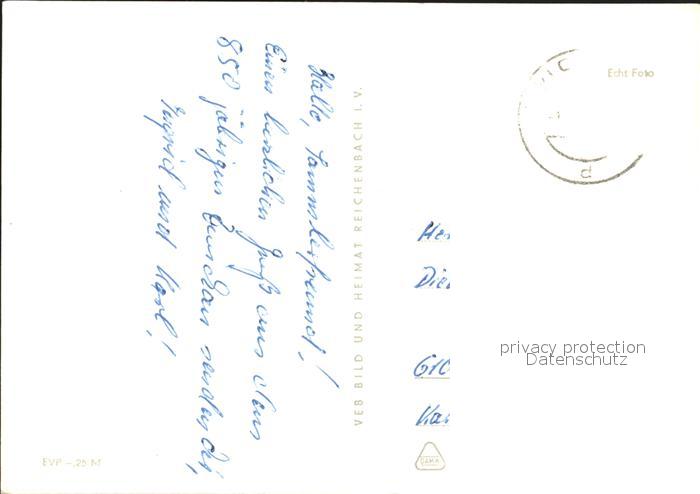 Hallo, Sammlerfreund!
Einen herzlichen Gruß aus dem
850 jährigen Zwickau sendet dir,
Ingrid und Karl!
VEB BILD UND HEIMAT REICHENBACH I. V.
Echt Foto
privacy protection
Datenschutz
EVP –,25 M